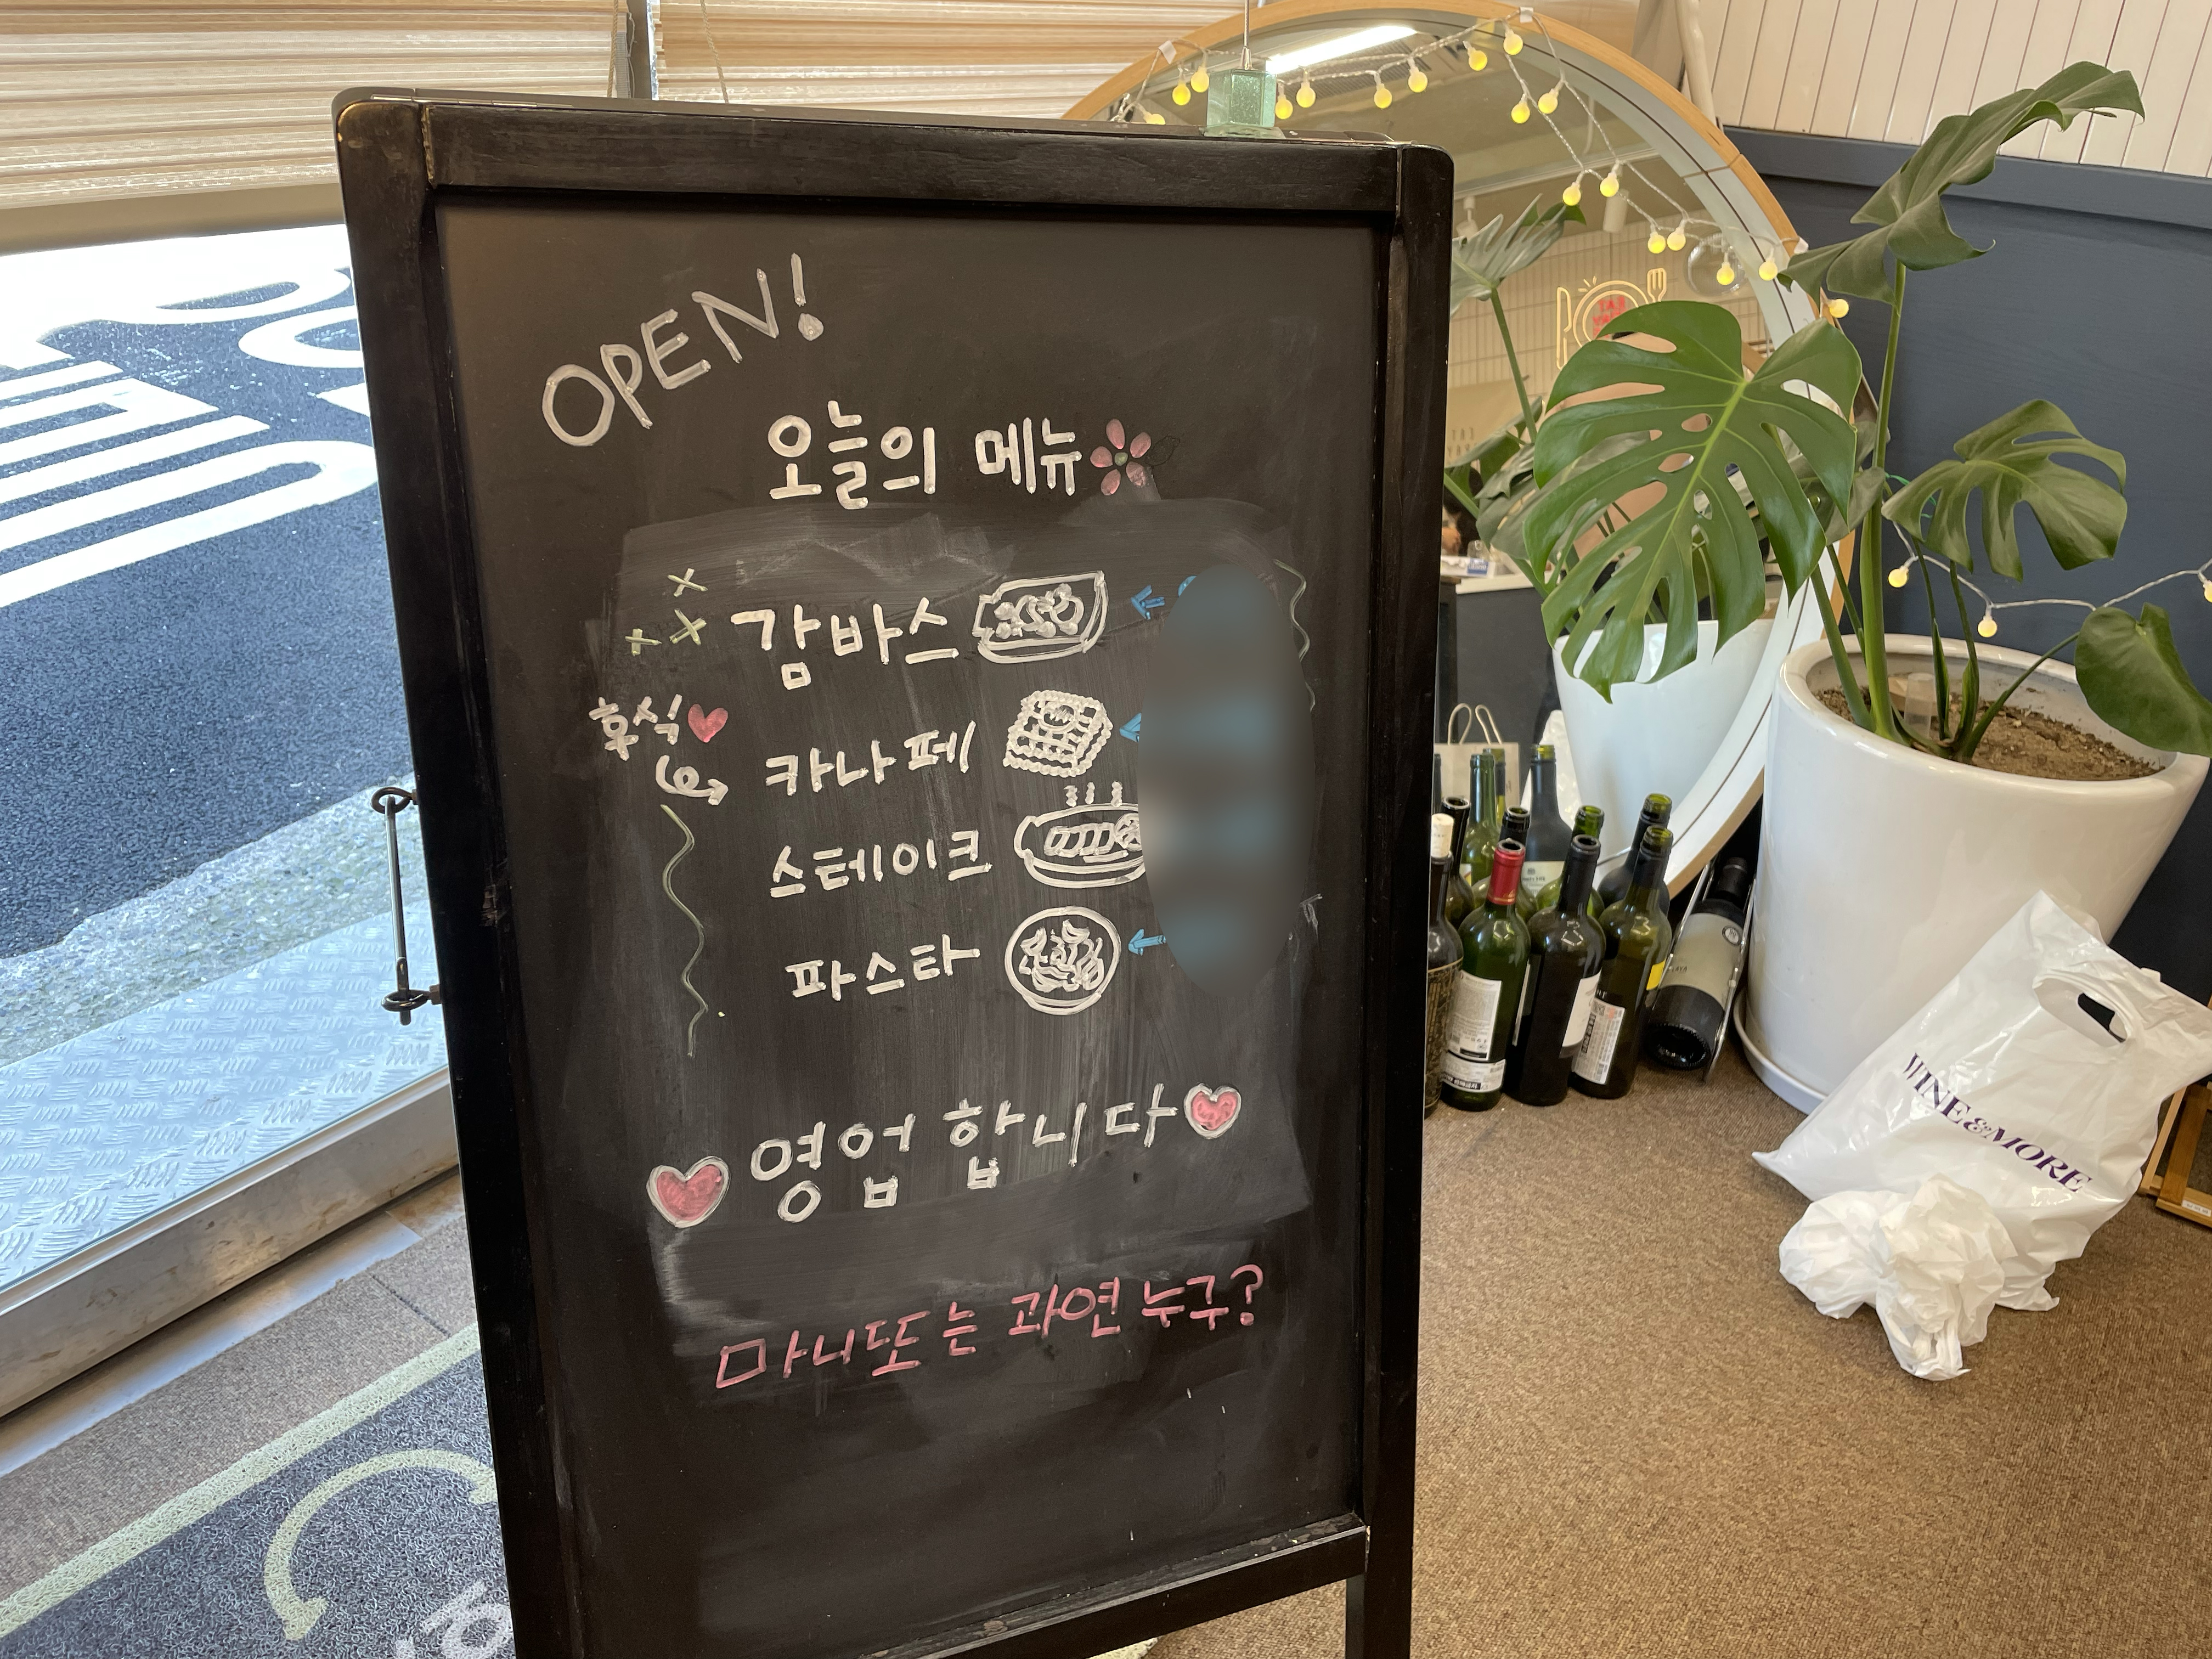 OPEN!
오늘의 메뉴
감바스
후식
카나페
스테이크
파스타
영업 합니다
마니또는 과연 누구?
WINE&MORE